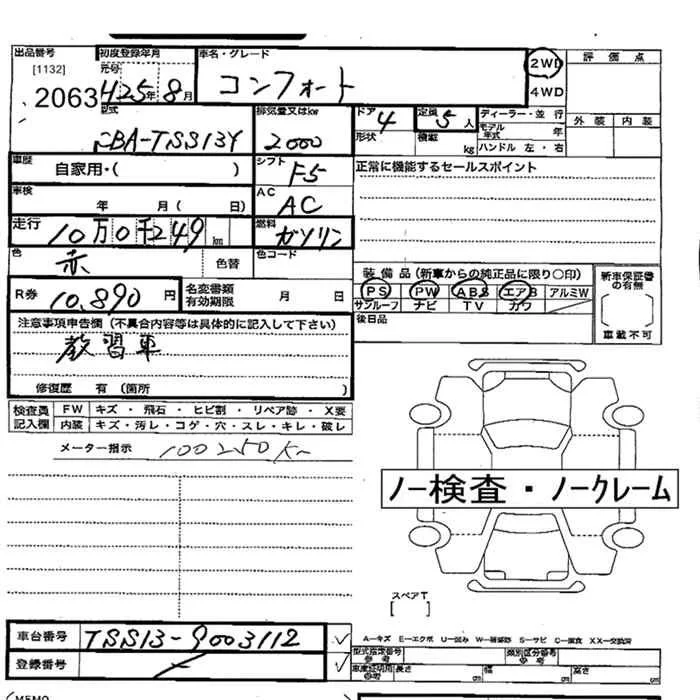 出品番号 初度登録年月 車名・グレード 2WD 評価点
[1132] 元号 コンフォート 4WD
2063 H25年8月 外装 内装
型式 排気量又はkw ドア 4 定員 5人 ディーラー・並行
CBA-TSS13Y 2000 形状 積載 kg モデル年式 年
ハンドル 左・右
車歴 自家用・( ) シフト F5 正常に機能するセールスポイント
車検 年 月( 日) AC AC
走行 10万0千249km 燃料 ガソリン
色 赤 色替 色コード 装備品(新車からの純正品に限り○印) 新車保証書の有無
R券 10,890円 名変書類有効期限 月 日 PS PW ABS エアB アルミW
サンルーフ ナビ TV カワ
注意事項申告欄(不具合内容等は具体的に記入して下さい) 後日品 車載不可
教習車
修復歴 有(箇所 )
検査員 FW キズ・飛石・ヒビ割・リペア跡・X要
記入欄 内装 キズ・汚レ・コゲ・穴・スレ・キレ・破レ
メーター指示 100250K
ノー検査・ノークレーム
スペアT
[ ]
車台番号 TSS13-9003112 A-キズ E-エクボ U-凹み W-補修跡 S-サビ C-腐食 XX-交換済
登録番号 型式指定番号 参考 類別区分番号 参考
車庫証明用 参考 長さ 幅 高さ
(MEMO